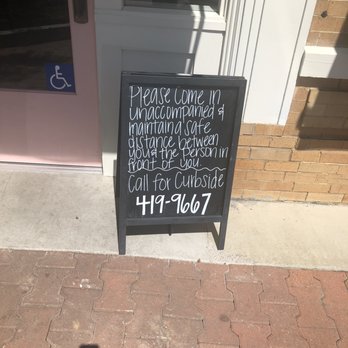 Please come in
unaccompanied &
maintain a safe
distance between
you & the person in
front of you
Call for Curbside
419-9667